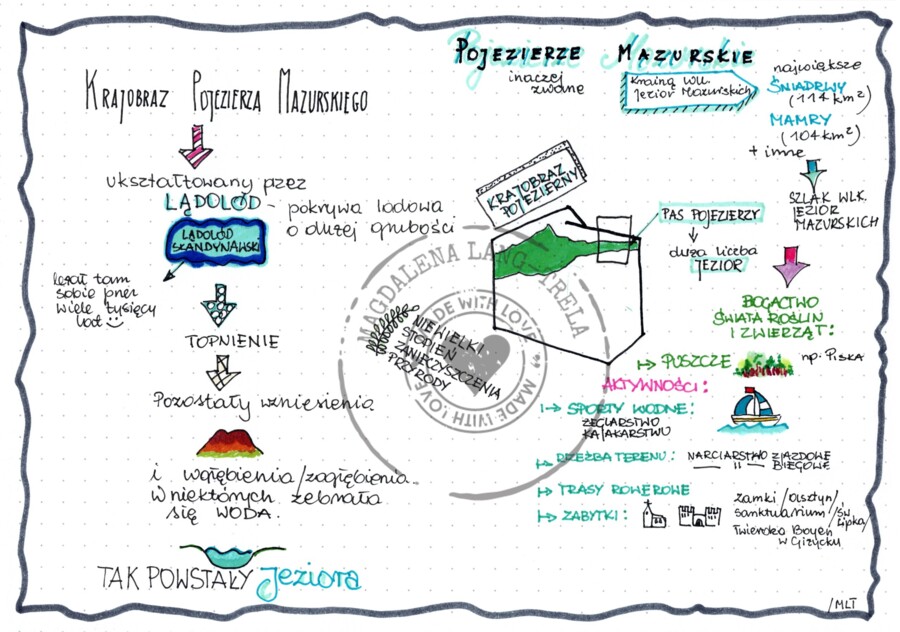 POJEZIERZE MAZURSKIE
inaczej
zwane
Krainą Wlk.
jezior Mazurskich
największe
ŚNIARDWY
(114 km²)
MAMRY
(104 km²)
+ inne
SZLAK WLK.
JEZIOR
MAZURSKICH
KRAJOBRAZ POJEZIERZA MAZURSKIEGO
ukształtowany przez
LĄDOLÓD - pokrywa lodowa
o dużej grubości
LĄDOLÓD
SKANDYNAWSKI
leżał tam
sobie przez
wiele tysięcy
lat
TOPNIENIE
Pozostały wzniesienia
i wgłębienia/zagłębienia.
W niektórych zebrała
się WODA.
TAK POWSTAŁY jeziora
KRAJOBRAZ
POJEZIERNY
PAS POJEZIERZY
duża liczba
JEZIOR
NIEWIELKI
STOPIEŃ
ZANIECZYSZCZENIA
PRZYRODY
BOGACTWO
ŚWIATA ROŚLIN
I ZWIERZĄT:
PUSZCZE np. PISKA
AKTYWNOŚCI:
SPORTY WODNE:
ŻEGLARSTWO
KAJAKARSTWO
RZEŹBA TERENU: NARCIARSTWO ZJAZDOWE
— " — BIEGOWE
TRASY ROWEROWE
ZABYTKI:
zamki /Olsztyn/
sanktuarium /Św. Lipka/
Twierdza Boyen
w Giżycku
MAGDALENA LANG-TRELA
MADE WITH LOVE
MADE WITH LOVE
/MLT